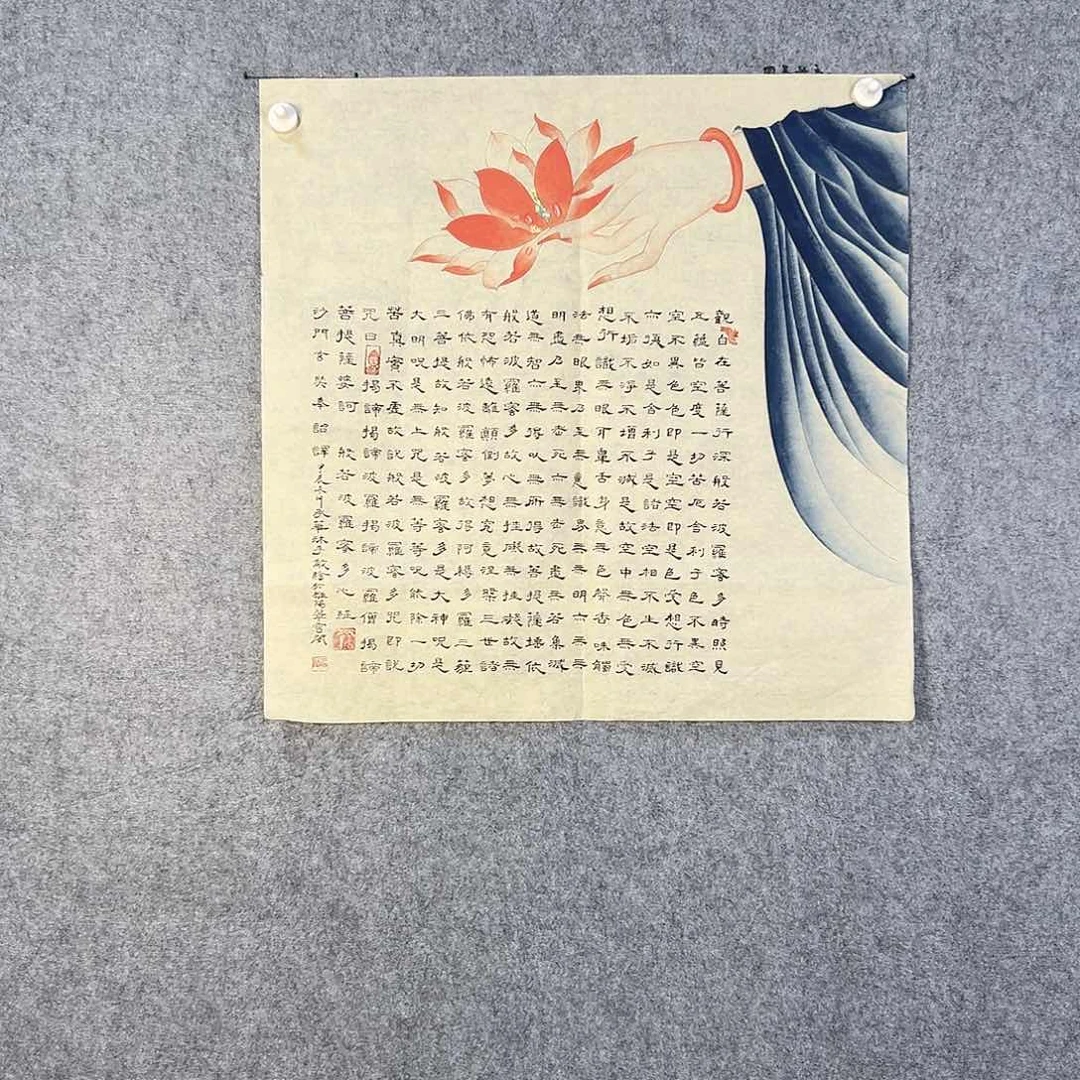 觀自在菩薩行深般若波羅蜜多時照見
五蘊皆空度一切苦厄舍利子色不異空
空不異色色即是空空即是色受想行識
亦復如是舍利子是諸法空相不生不滅
不垢不淨不增不減是故空中无色无受
想行識无眼耳鼻舌身意无色聲香味觸
法無眼界乃至无意識界无无明亦无无
明盡乃至无老死亦无老死盡无苦集滅
道無智亦無得以無所得故菩提薩埵依
般若波羅蜜多故心无挂礙无挂礙故无
有恐怖遠離顛倒夢想究竟涅槃三世諸
佛依般若波羅蜜多故得阿耨多羅三藐
三菩提故知般若波羅蜜多是大神呪是
大明呪是無上咒是無等等呪能除一切
苦真實不虛故說般若波羅蜜多咒即說
咒曰揭諦揭諦波羅揭諦波羅僧揭諦
菩提薩婆訶 般若波羅蜜多心經
沙門玄奘奉詔譯